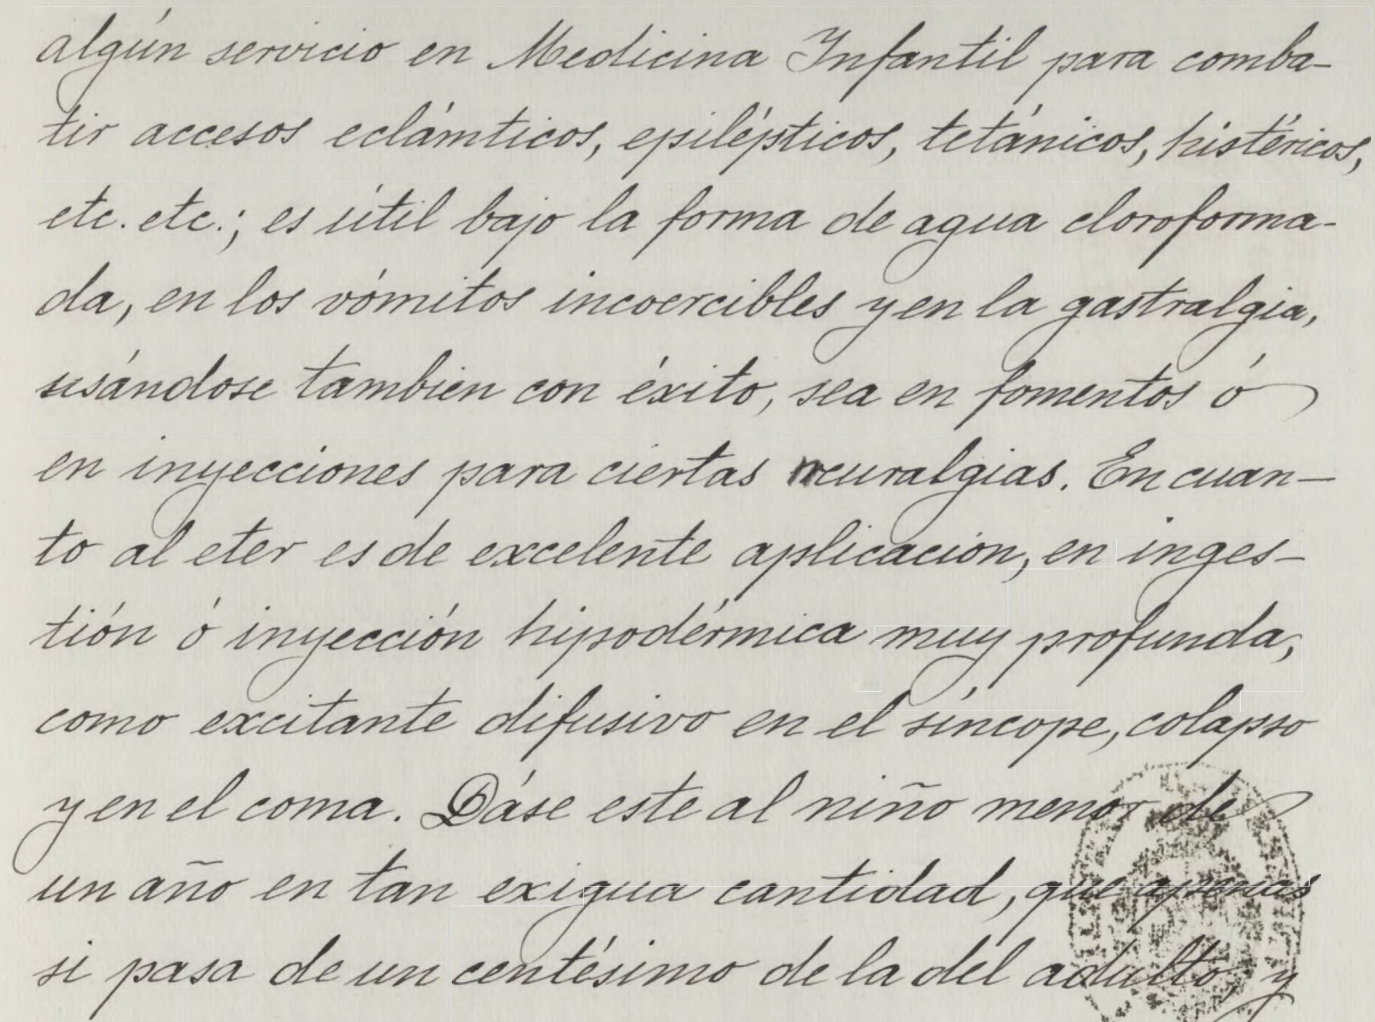 algún servicio en Medicina Infantil para comba-
tir accesos eclámticos, epilépticos, tetánicos, histéricos,
etc. etc.; es útil bajo la forma de agua cloroforma-
da, en los vómitos incoercibles y en la gastralgia,
usándose tambien con éxito, sea en fomentos ó
en inyecciones para ciertas neuralgias. En cuan-
to al eter es de excelente aplicación, en inges-
tión ó inyección hipodérmica muy profunda,
como excitante difusivo en el síncope, colapso
y en el coma. Dáse este al niño menor de
un año en tan exigua cantidad, que apenas
si pasa de un centésimo de la del adulto, y